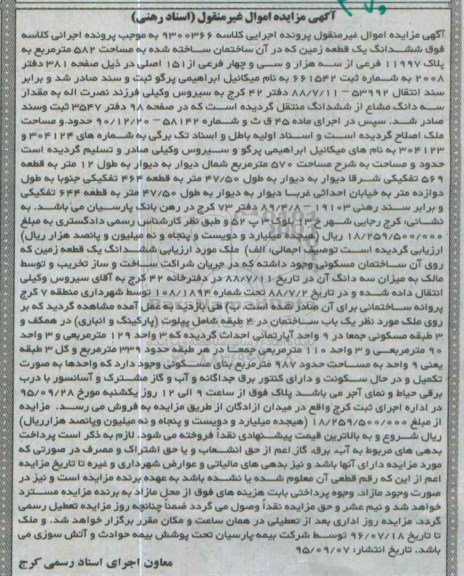 آگهی مزایده اموال غیرمنقول (اسناد رهنی)
آگهی مزایده اموال غیرمنقول پرونده اجرایی کلاسه ۹۳۰۰۳۶۶ به موجب پرونده اجرائی کلاسه
فوق ششدانگ یک قطعه زمین که در آن ساختمان ساخته شده به مساحت ۵۸۲ مترمربع به
پلاک ۱۱۹۹۷ فرعی از سه هزار و سی و چهار فرعی از ۱۵۱ اصلی در ذیل صفحه ۳۸۱ دفتر
۲۰۰۸ به شماره ثبت ۶۶۱۵۴۲ به نام میکائیل ابراهیمی پرگو ثبت و سند صادر شد و برابر
سند انتقال ۵۳۹۹۲ – ۸۸/۷/۱۱ دفتر ۴۲ کرج به سیروس وکیلی فرزند نصرت اله به مقدار
سه دانگ مشاع از ششدانگ منتقل گردیده است که در صفحه ۹۸ دفتر ۳۵۴۷ ثبت وسند
صادر شد. سپس در اجرای ماده ۴۵ ق ث و شماره ۵۸۱۴۲ – ۹۰/۱۲/۲۰ حدود و مساحت
ملک اصلاح گردیده است و اسناد اولیه باطل و اسناد تک برگی به شماره های ۳۰۴۱۲۴ و
۳۰۴۱۲۳ به نام های میکائیل ابراهیمی پرگو و سیروس وکیلی صادر و تسلیم گردیده است
حدود و مساحت به شرح مساحت ۵۷۰ مترمربع شمال دیوار به دیوار به طول ۱۲ متر به قطعه
۵۶۹ تفکیکی شرقا دیوار به دیوار به طول ۴۷/۵۰ متر به قطعه ۴۶۴ تفکیکی جنوبا به طول
دوازده متر به خیابان احداثی غربا دیوار به دیوار به طول ۴۷/۵۰ متر به قطعه ۶۴۴ تفکیکی
و برابر سند رهنی ۱۹۱۰۳ – ۸۹/۴/۸ دفتر ۷۳ کرج در رهن بانک پارسیان می باشد. به
نشانی: کرج رجایی شهر خ بلوک ۲۰ ۵۲ و طبق نظر کارشناس رسمی دادگستری به مبلغ
۱۸/۲۵۹/۵۰۰/۰۰۰ ریال (هیجده میلیارد و دویست و پنجاه و نه میلیون و پانصد هزار ریال)
ارزیابی گردیده است توصیف اجمالی: الف) ملک مورد ارزیابی ششدانگ یک قطعه زمین که
روی آن ساختمان مسکونی وجود داشته که در جریان شراکت ساخت و ساز تخریب و توسط
مالک به میزان سه دانگ آن در تاریخ ۸۸/۷/۱ در دفترخانه ۴۲ کرج به آقای سیروس وکیلی
انتقال داده شده و در تاریخ ۸۸/۷/۲ تحت شماره ۱۰۸/۱۸۹۴ توسط شهرداری منطقه ۷ کرج
پروانه ساختمانی برای آن صادر شده است. ب) طی بازدید به عمل آمده مشاهده گردید که بر
روی ملک مورد نظر یک باب ساختمان در ۴ طبقه شامل پیلوت (پارکینگ و انباری) در همکف و
۳ طبقه مسکونی جمعا در ۹ واحد آپارتمانی احداث گردیده که ۳ واحد ۱۲۹ مترمربعی و ۳ واحد
۹۰ مترمربعی و ۳ واحد ۱۱۰ مترمربعی جمعا در هر طبقه حدود ۳۳۹ مترمربع و کل ۳ طبقه
یعنی ۹ واحد به مساحت حدود ۹۸۷ مترمربع بنای مسکونی وجود دارد که واحدها به صورت
تکمیل و در حال سکونت و دارای کنتور برق جداگانه و آب و گاز مشترک و آسانسور با درب
برقی حیاط و نمای آجر می باشد پلاک فوق از ساعت ۹ الی ۱۲ روز یکشنبه مورخ ۹۵/۰۹/۲۸
در اداره اجرای ثبت کرج واقع در میدان آزادگان از طریق مزایده به فروش می رسد. مزایده
از مبلغ ۱۸/۲۵۹/۵۰۰/۰۰۰ (هیجده میلیارد و دویست و پنجاه و نه میلیون وپانصد هزارریال)
ریال شروع و به بالاترین قیمت پیشنهادی نقدا فروخته می شود. لازم به ذکر است پرداخت
بدهی های مربوط به آب، برق، گاز اعم از حق انشعاب و یا حق اشتراک و مصرف در صورتی که
مورد مزایده دارای آنها باشد و نیز بدهی های مالیاتی و عوارض شهرداری و غیره تا تاریخ مزایده
اعم از این که رقم قطعی آن معلوم شده یا نشده باشد به عهده برنده مزایده است و نیز در
صورت وجود مازاد، وجوه پرداختی بابت هزینه های فوق از محل مازاد به برنده مزایده مسترد
خواهد شد و نیم عشر و حق مزایده نقداً وصول می گردد ضمناً چنانچه روز مزایده تعطیل رسمی
گردد، مزایده روز اداری بعد از تعطیلی در همان ساعت و مکان مقرر برگزار خواهد شد. و ملک
تا تاریخ ۹۶/۰۷/۱۸ توسط شرکت بیمه پارسیان تحت پوشش بیمه حوادث و آتش سوزی می
باشد. تاریخ انتشار: ۹۵/۰۹/۰۷
معاون اجرای اسناد رسمی کرج